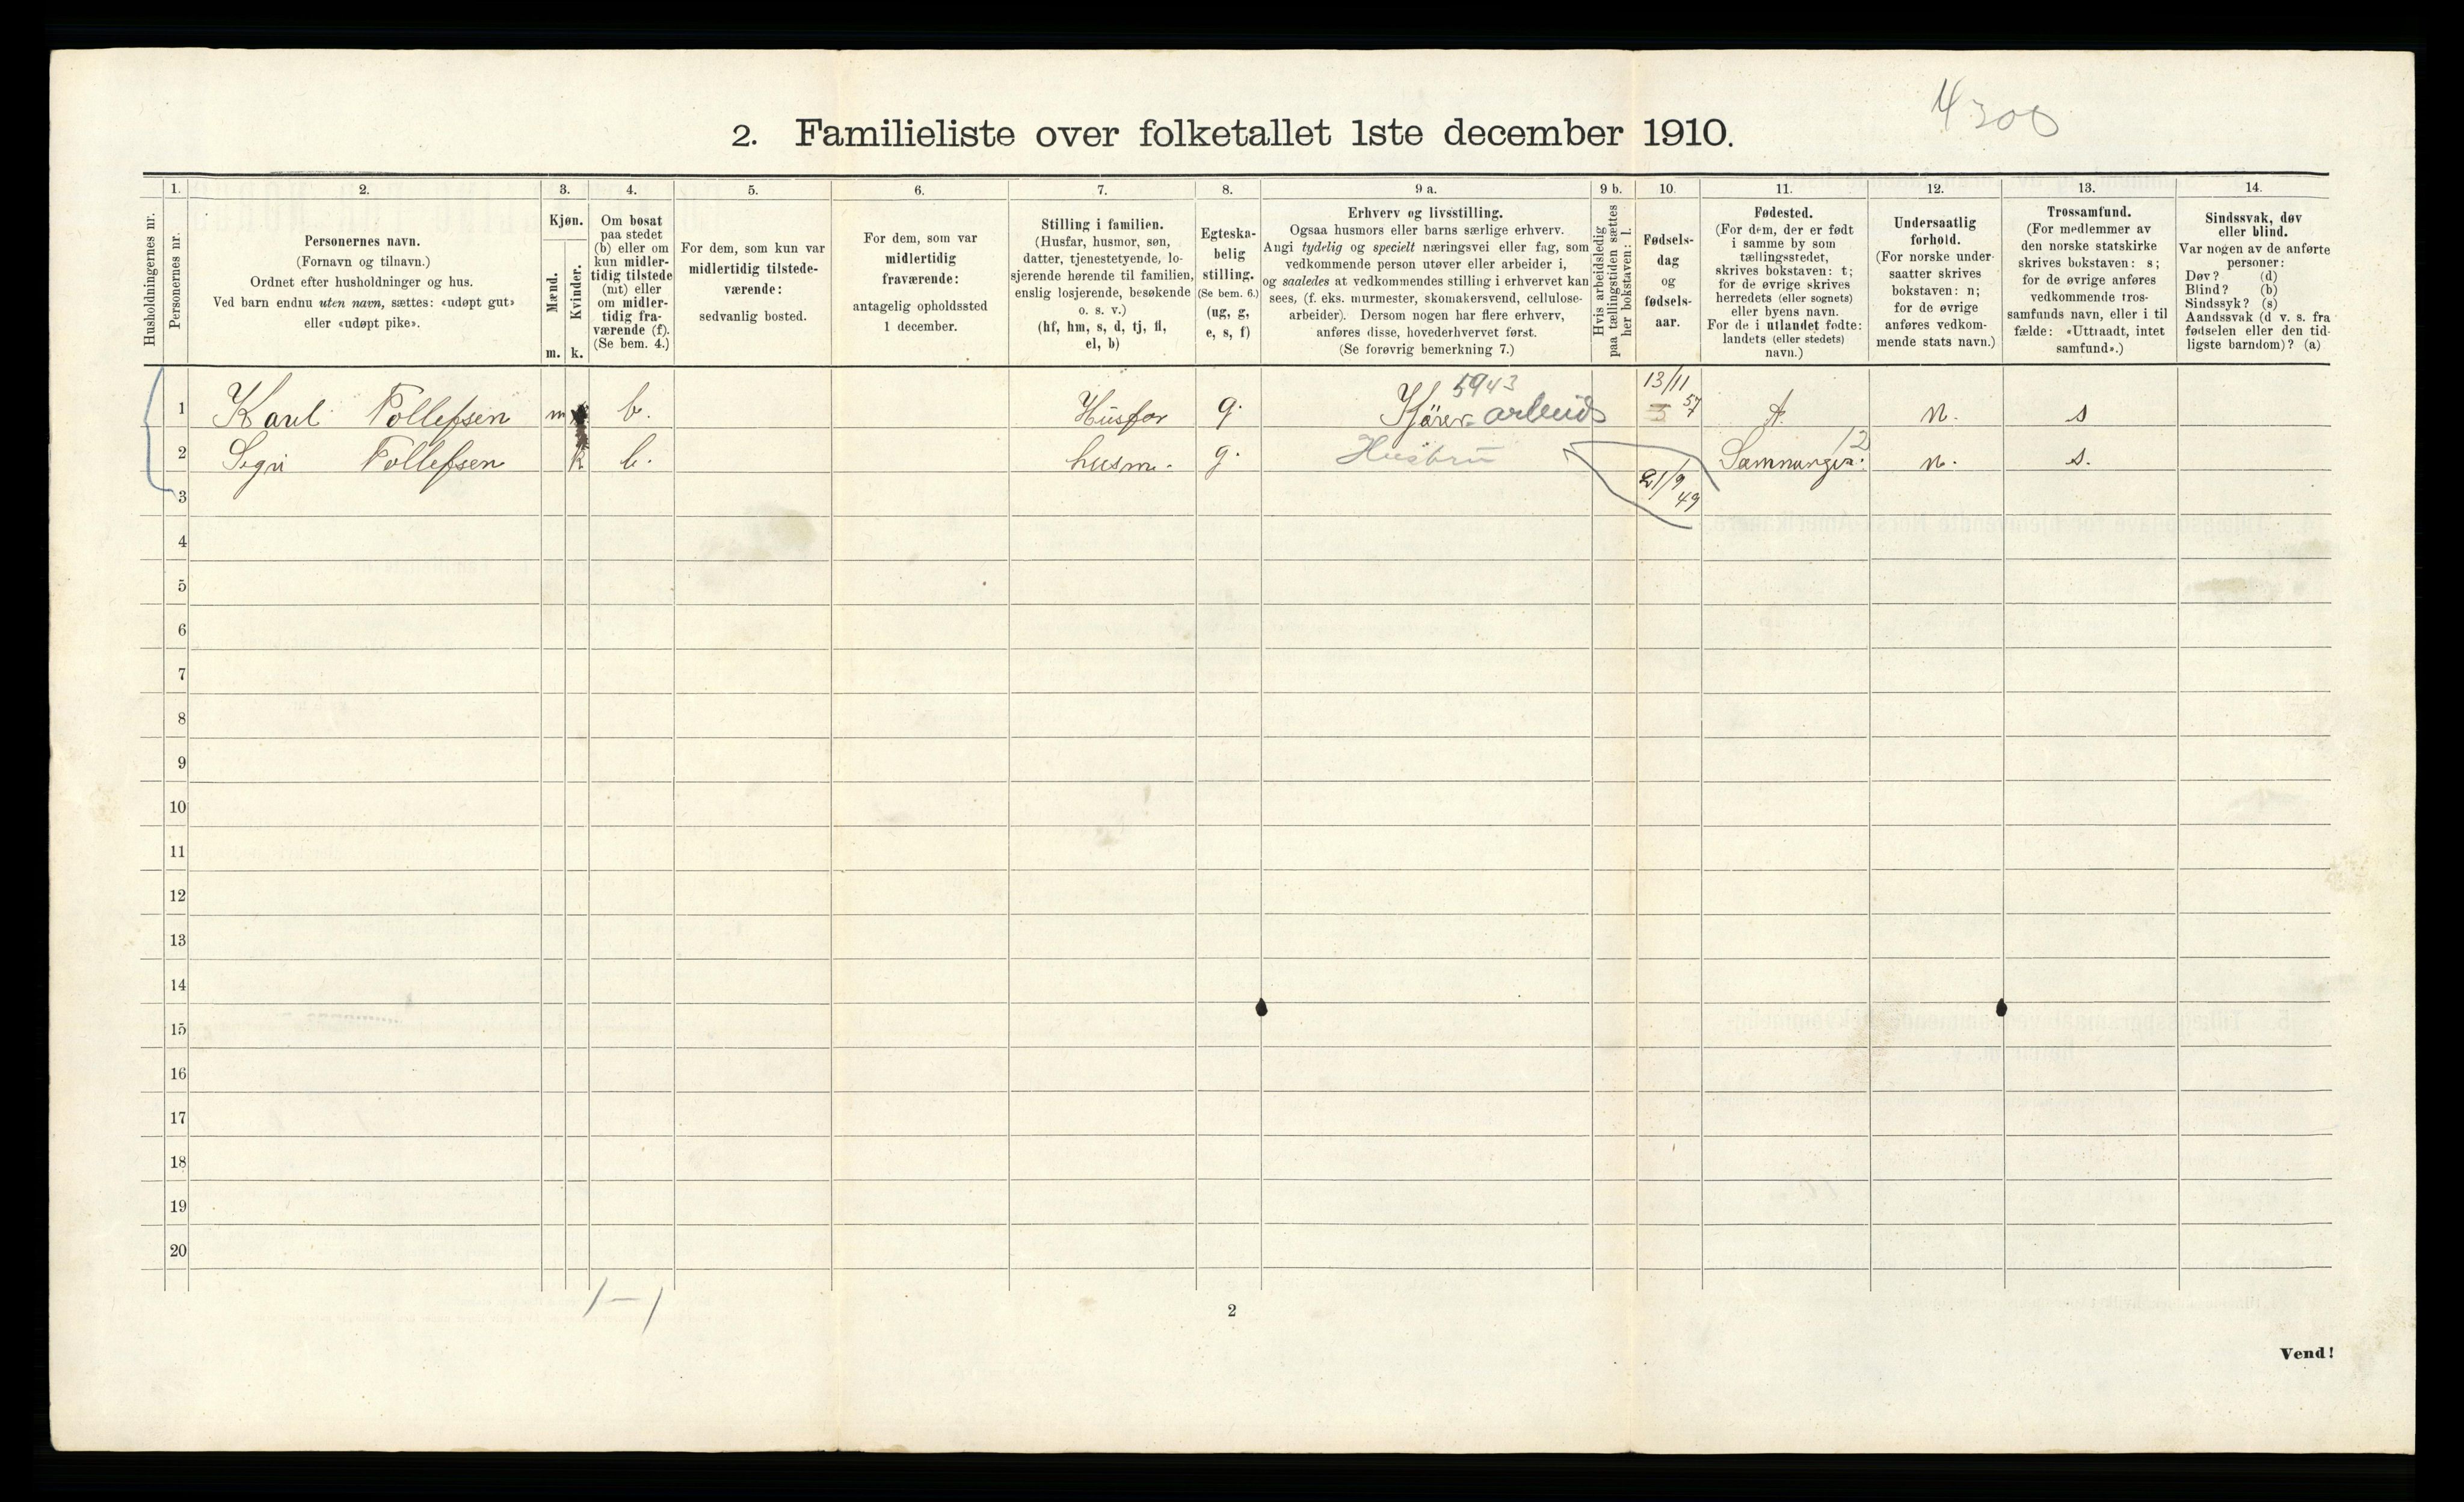 4300
2. Familieliste over folketallet 1ste december 1910.
Husholdningernes nr.
1.
Personernes nr.
2.
Personernes navn.
(Fornavn og tilnavn.)
Ordnet efter husholdninger og hus.
Ved barn endnu uten navn, sættes: «udøpt gut»
eller «udøpt pike».
3.
Kjøn.
Mænd.
Kvinder.
m. k.
4.
Om bosat
paa stedet
(b) eller om
kun midler-
tidig tilstede
(mt) eller
om midler-
tidig fra-
værende (f).
(Se bem. 4.)
5.
For dem, som kun var
midlertidig tilstede-
værende:
sedvanlig bosted.
6.
For dem, som var
midlertidig
fraværende:
antagelig opholdssted
1 december.
7.
Stilling i familien.
(Husfar, husmor, søn,
datter, tjenestetyende, lo-
sjerende hørende til familien,
enslig losjerende, besøkende
o. s. v.)
(hf, hm, s, d, tj, fl,
el, b)
8.
Egteska-
belig
stilling.
(Se bem. 6.)
(ug, g,
e, s, f)
9 a.
Erhverv og livsstilling.
Ogsaa husmors eller barns særlige erhverv.
Angi tydelig og specielt næringsvei eller fag, som
vedkommende person utøver eller arbeider i,
og saaledes at vedkommendes stilling i erhvervet kan
sees, (f. eks. murmester, skomakersvend, cellulose-
arbeider). Dersom nogen har flere erhverv,
anføres disse, hovederhvervet først.
(Se forøvrig bemerkning 7.)
9 b.
Hvis arbeidsledig
paa tællingstiden sættes
her bokstaven: l.
10.
Fødsels-
dag
og
fødsels-
aar.
11.
Fødested.
(For dem, der er født
i samme by som
tællingsstedet,
skrives bokstaven: t;
for de øvrige skrives
herredets (eller sognets)
eller byens navn.
For de i utlandet fødte:
landets (eller stedets)
navn.)
12.
Undersaatlig
forhold.
(For norske under-
saatter skrives
bokstaven: n;
for de øvrige
anføres vedkom-
mende stats navn.)
13.
Trossamfund.
(For medlemmer av
den norske statskirke
skrives bokstaven: s;
for de øvrige anføres
vedkommende tros-
samfunds navn, eller i til-
fælde: «Uttraadt, intet
samfund».)
14.
Sindssvak, døv
eller blind.
Var nogen av de anførte
personer:
Døv? (d)
Blind? (b)
Sindssyk? (s)
Aandssvak (d. v. s. fra
fødselen eller den tid-
ligste barndom)? (a)
1 Karl Tollefsen m b. Husfar g. 5943 Kjøre-arbeid 13/11 57 t. n. s
2 Segri Tollefsen k b. husm. g. Hustru 21/9 49 Samnanger. 12 n. s.
3
4
5
6
7
8
9
10
11
12
13
14
15
16
17
18
19
20
1 – 1
2
Vend!